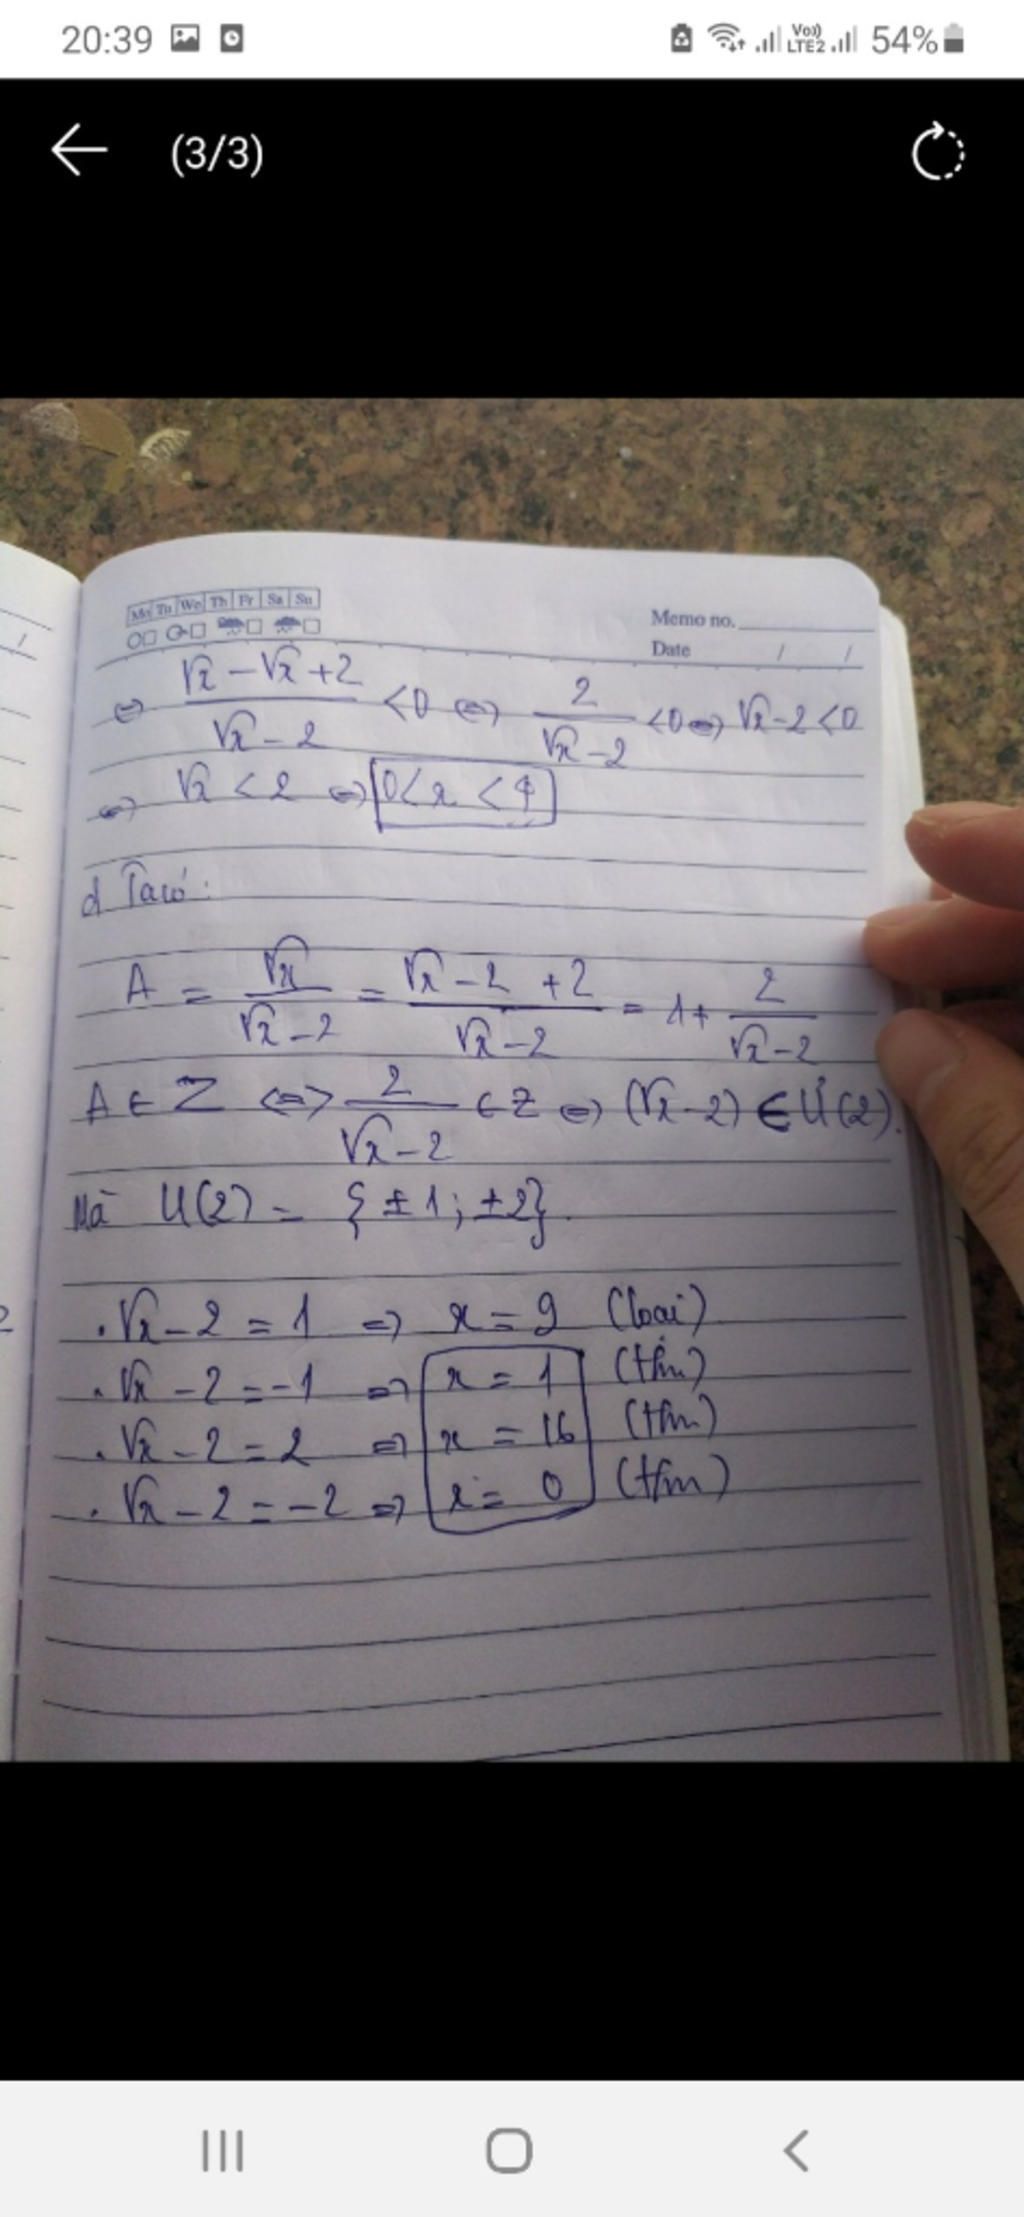 20:39 Vo)) LTE2 54%
(3/3)
Mo Tu We Th Fr Sa Su
Memo no.
Date / /
⇔ (√x - √x + 2)/(√x - 2) < 0 ⇔ 2/(√x - 2) < 0 ⇔ √x - 2 < 0
⇔ √x < 2 ⇔ 0 < x < 4
d Ta có:
A = √x/(√x - 2) = (√x - 2 + 2)/(√x - 2) = 1 + 2/(√x - 2)
A ∈ Z ⇔ 2/(√x - 2) ∈ Z ⇔ (√x - 2) ∈ Ư(2).
Mà Ư(2) = {±1; ±2}.
. √x - 2 = 1 ⇒ x = 9 (loại)
. √x - 2 = -1 ⇒ x = 1 (tm)
. √x - 2 = 2 ⇒ x = 16 (tm)
. √x - 2 = -2 ⇒ x = 0 (tm)